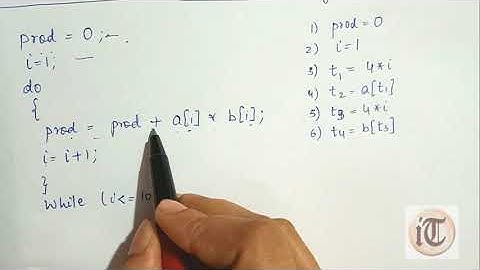 prod = 0;
i=1;
do
{
prod = prod + a[i] * b[i];
i = i+1;
}
while (i<= 10
1) prod=0
2) i=1
3) t1 = 4*i
4) t2 = a[t1]
5) t3 = 4*i
6) t4 = b[t3]
iT